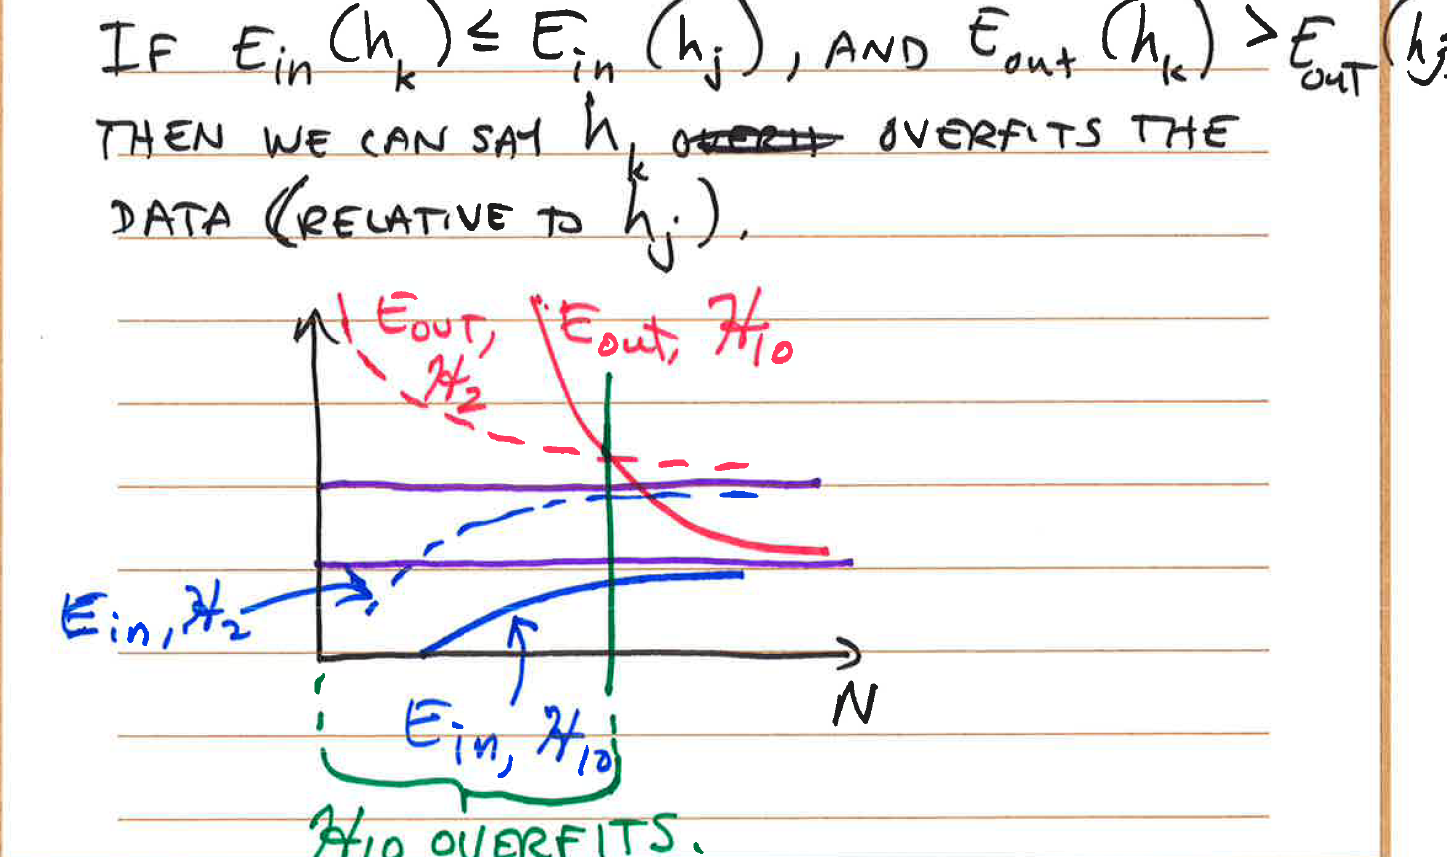 IF E_in (h_k) ≤ E_in (h_j), AND E_out (h_k) > E_OUT (h_j
THEN WE CAN SAY h_k OVERFITS THE
DATA (RELATIVE TO h_j).
E_OUT, ℋ_2
E_out, ℋ_10
E_in, ℋ_2
N
E_in, ℋ_10
ℋ_10 OVERFITS.